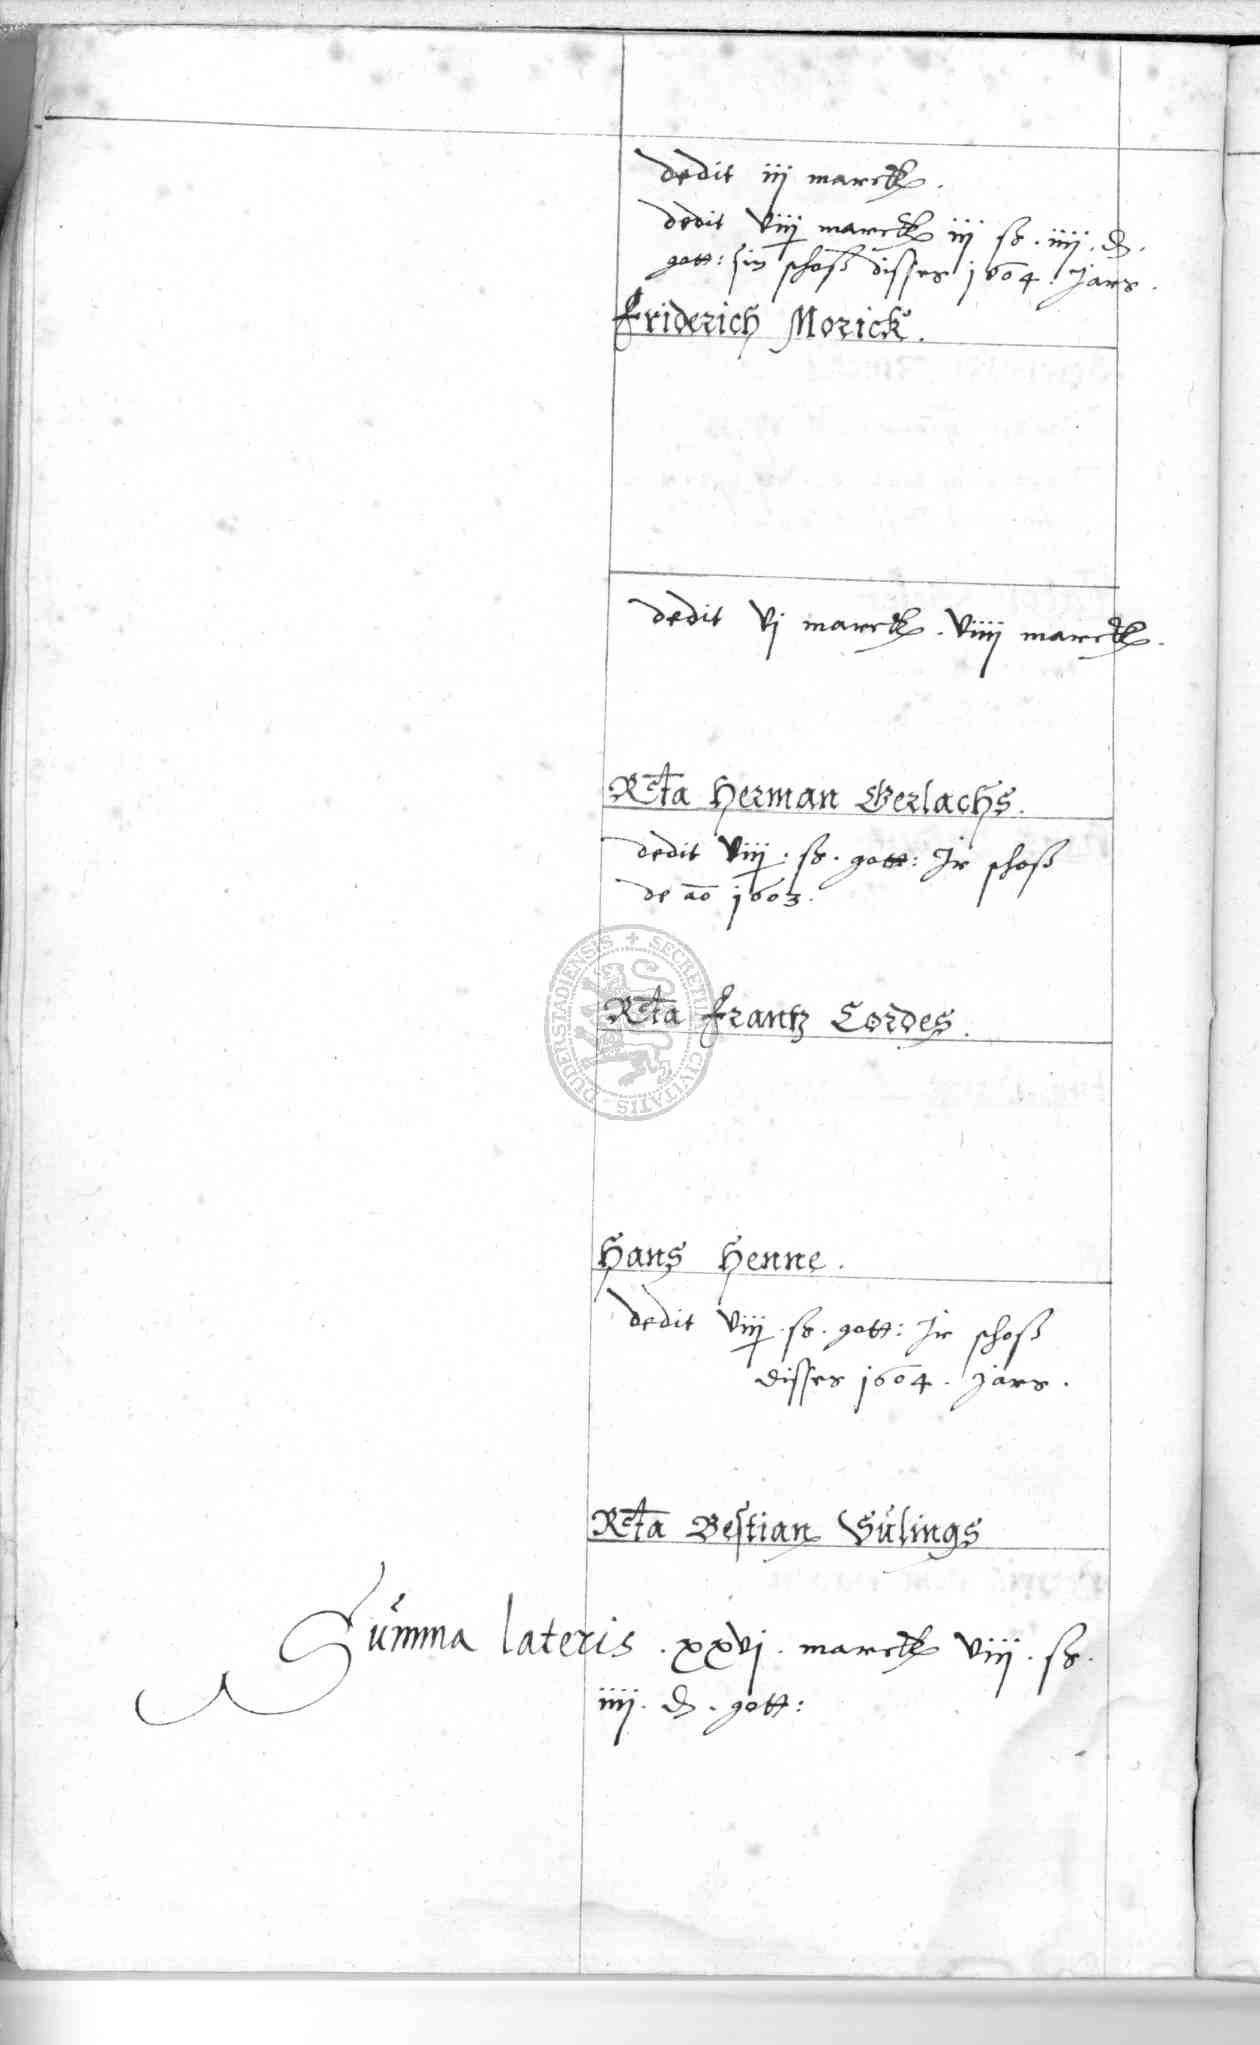 dedit iij marck.
dedit viij marck iij ß. iiij. d.
gott: sin schoß disses 1604. Jars.
Friderich Morick.
dedit vj marck. viiij marck.
Rcta Herman Gerlachs.
dedit viij. ß. gott: Ir schoß
de ao 1603.
SECRETUM CIVITATIS DUDERSTADIENSIS
Rcta Frantz Cordes.
Hans Henne.
dedit viij. ß. gott: Ir schoß
disses 1604. Jars.
Rcta Bestian Sülings
Summa lateris. xxvj. marck viij. ß.
iiij. d. gott: